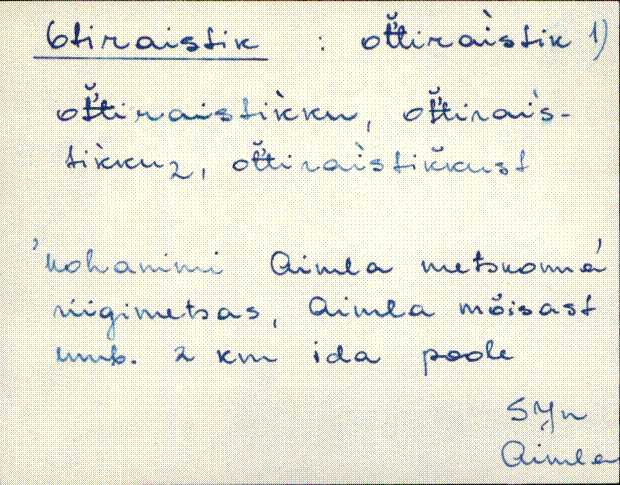 Otiraistik : ot̆tiraìstik 1)
ot̆tiraistìkku, ot̆tiraìs-
tìkku2, ot̆tiraìstik̆kust
'kohanimi Aimla metskonna'
riigimetsas, Aimla mõisast
umb. 2 km ida poole
SJn
Aimla